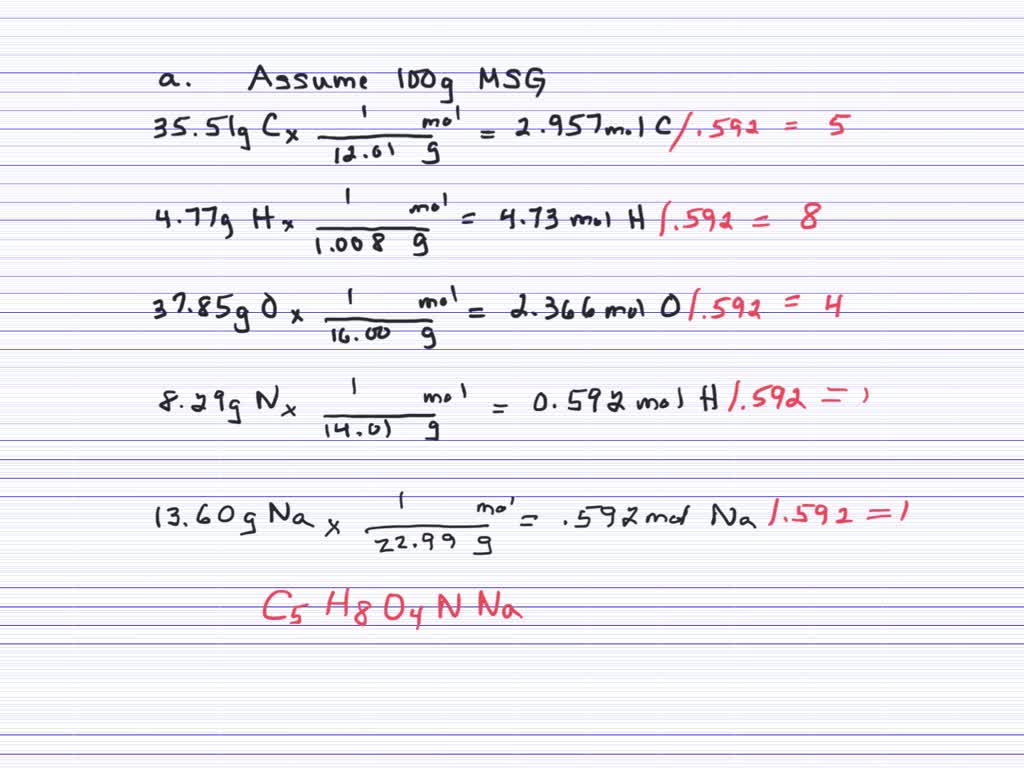 a. Assume 100g MSG
35.51g C x 1 mol / 12.01 g = 2.957 mol C /.592 = 5
4.77g H x 1 mol / 1.008 g = 4.73 mol H /.592 = 8
37.85g O x 1 mol / 16.00 g = 2.366 mol O /.592 = 4
8.29g N x 1 mol / 14.01 g = 0.592 mol H /.592 = 1
13.60g Na x 1 mol / 22.99 g = .592 mol Na /.592 = 1
C5 H8 O4 N Na